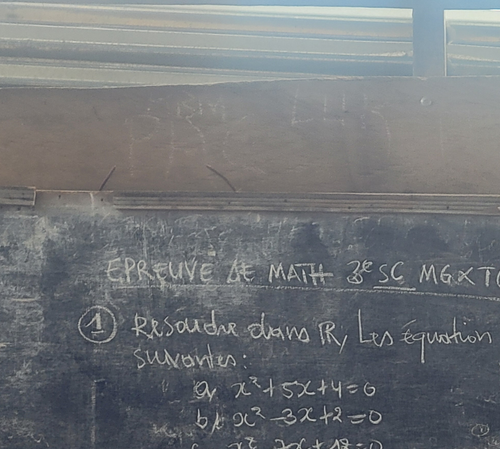 EPREUVE DE MATH 3e SC MGXT
① Resoudre dans R, Les équation
suivantes:
a, x²+5x+4=0
b, x²-3x+2=0